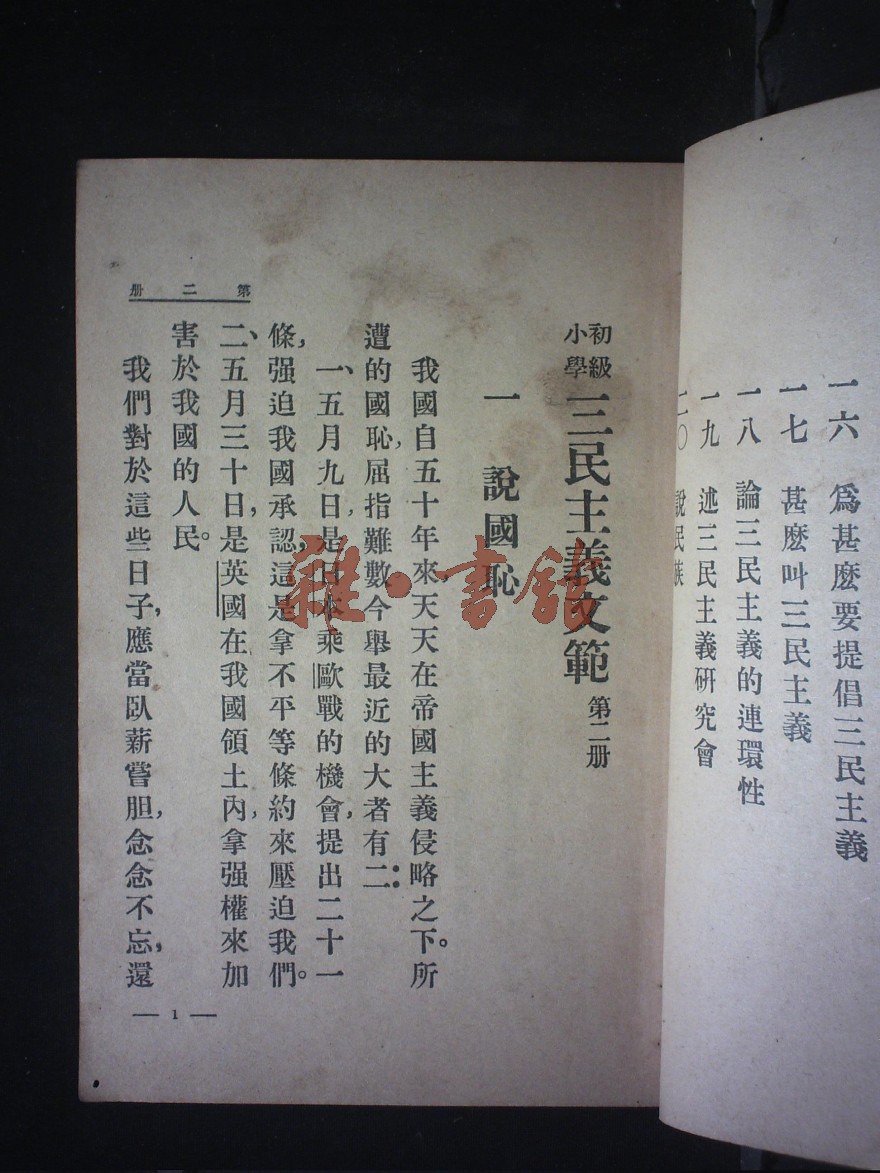 一六 爲甚麽要提倡三民主義
一七 甚麽叫三民主義
一八 論三民主義的連環性
一九 述三民主義研究會
二〇 說民族
初級小學三民主義文範 第二册
一 說國恥
我國自五十年來天天在帝國主義侵略之下。所
遭的國恥，屈指難數，今舉最近的大者有二：
一、五月九日，是日本乘歐戰的機會，提出二十一
條，强迫我國承認，這是拿不平等條約來壓迫我們。
二、五月三十日，是英國在我國領土內，拿强權來加
害於我國的人民。
我們對於這些日子，應當臥薪嘗胆，念念不忘，還
第二册
— 1 —
雜·書館